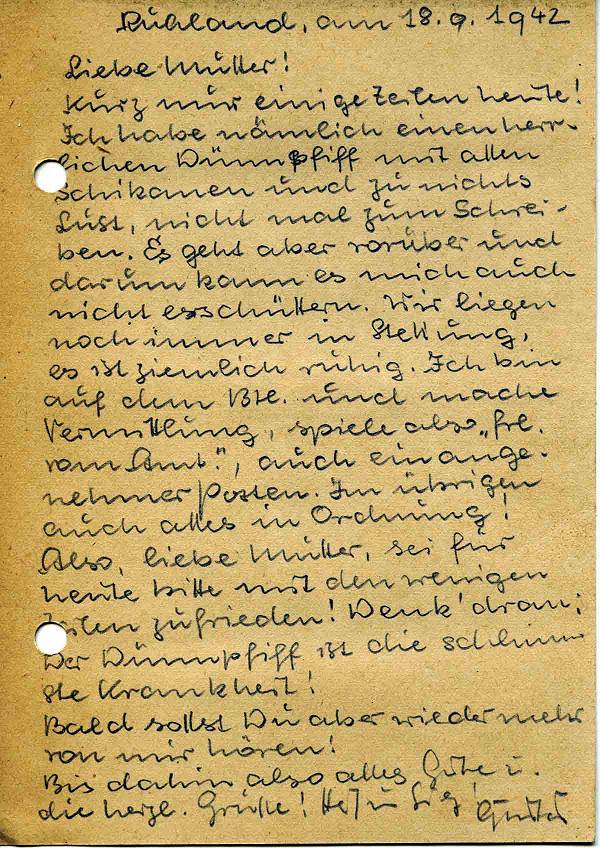 Rußland, am 18.9.1942
Liebe Mutter!
Kurz nur einige Zeilen heute!
Ich habe nämlich einen herr-
lichen Dünnpfiff mit allen
Schikanen und zu nichts
Lust, nicht mal zum Schrei-
ben. Es geht aber vorüber und
darum kann es mich auch
nicht erschüttern. Wir liegen
noch immer in Stellung,
es ist ziemlich ruhig. Ich bin
auf dem Btl. und mache
Vermittlung, spiele also „Frl.
vom Amt.", auch ein ange-
nehmer Posten. Im übrigen
auch alles in Ordnung!
Also, liebe Mutter, sei für
heute bitte mit den wenigen
Zeilen zufrieden! Denk' dran:
Der Dünnpfiff ist die schlimm
ste Krankheit!
Bald sollst Du aber wieder mehr
von mir hören!
Bis dahin also alles Gute u.
die herzl. Grüße!